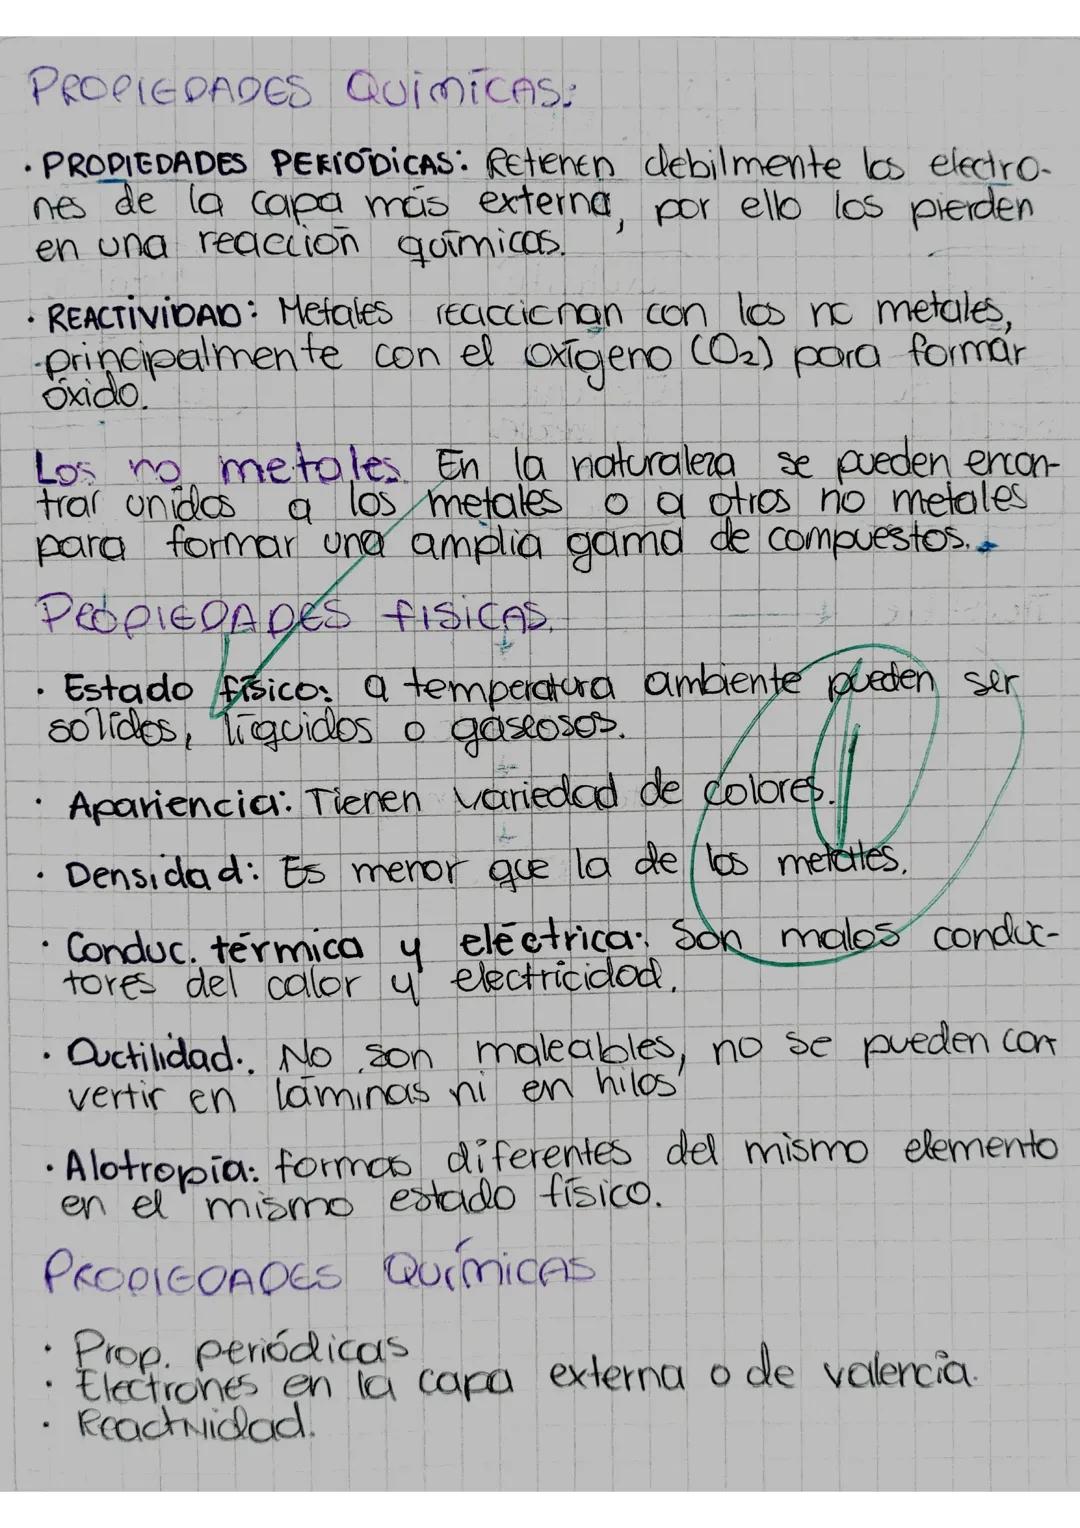 PROPIEDADES QUíMíCAS:
· PROPIEDADES PERIÓDICAS: Retienen debilmente los electro-
nes de la capa más externa, por ello los pierden
en una reacción químicas.
· REACTIVIDAD: Metales reaccionan con los no metales,
principalmente con el oxígeno (O2) para formar
óxido.
Los no metales. En la naturaleza se pueden encon-
trar unidos a los metales o a otros no metales
para formar una amplia gama de compuestos.
PROPIEDADES fISICAS.
· Estado físico: a temperatura ambiente pueden ser
solidos, líquidos o gaseosos.
· Apariencia: Tienen variedad de colores.
· Densidad: Es menor que la de los metales.
· Conduc. térmica y eléctrica: Son malos conduc-
tores del calor y electricidad.
· Ductilidad: No son maleables, no se pueden con
vertir en láminas ni en hilos
· Alotropía: formas diferentes del mismo elemento
en el mismo estado físico.
PROPIEDADES QUíMICAS
· Prop. periódicas
· Electrones en la capa externa o de valencia.
· Reactividad.